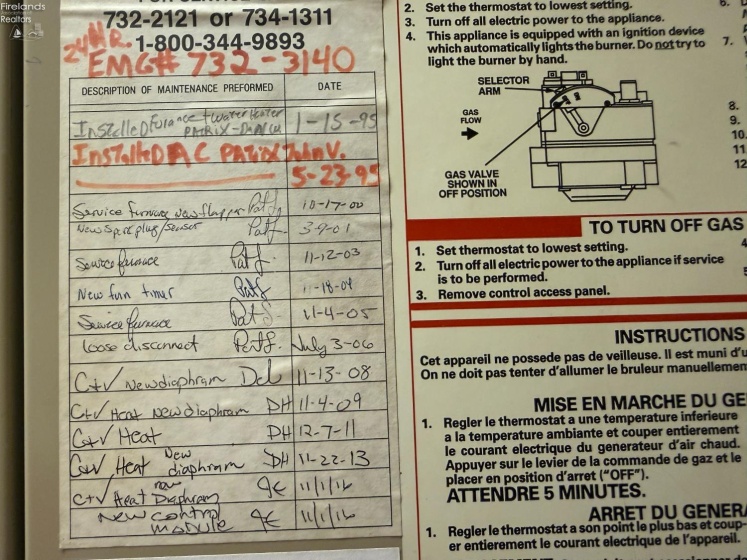 Firelands
Realtors
732-2121 or 734-1311
1-800-344-9893
24 HR.
EMG# 732-3140
DESCRIPTION OF MAINTENANCE PREFORMED DATE
InstalleD Furance + Water Heater
PATRIX- 1-15-95
InstalleD AC PATRIX John V.
5-23-95
Service furnace new flapper Pat J. 10-17-00
New spark plug/sensor Pat J. 3-9-01
Service furnace Pat J. 11-12-03
New fan timer Pat J. 11-18-04
Service furnace Pat J. 11-4-05
loose disconnect Pat J. July 3-06
C+V New diaphram Del 11-13-08
C+V Heat New diaphram DH 11-4-09
C+V Heat DH 12-7-11
C+V Heat New diaphram DH 11-22-13
C+V Heat new Diaphram 11/1/16
New control module 11/1/16
2. Set the thermostat to lowest setting.
3. Turn off all electric power to the appliance.
4. This appliance is equipped with an ignition device
which automatically lights the burner. Do not try to
light the burner by hand.
6.
7.
8.
9.
10.
11
12
SELECTOR
ARM
GAS
FLOW
GAS VALVE
SHOWN IN
OFF POSITION
TO TURN OFF GAS
1. Set thermostat to lowest setting.
2. Turn off all electric power to the appliance if service
is to be performed.
3. Remove control access panel.
INSTRUCTIONS
Cet appareil ne possede pas de veilleuse. Il est muni d'u
On ne doit pas tenter d'allumer le bruleur manuellemen
MISE EN MARCHE DU GE
1. Regler le thermostat a une temperature inferieure
a la temperature ambiante et couper entierement
le courant electrique du generateur d'air chaud.
Appuyer sur le levier de la commande de gaz et le
placer en position d'arret ("OFF").
ATTENDRE 5 MINUTES.
ARRET DU GENERA
1. Regler le thermostat a son point le plus bas et coup-
er entierement le courant electrique de l'appareil.